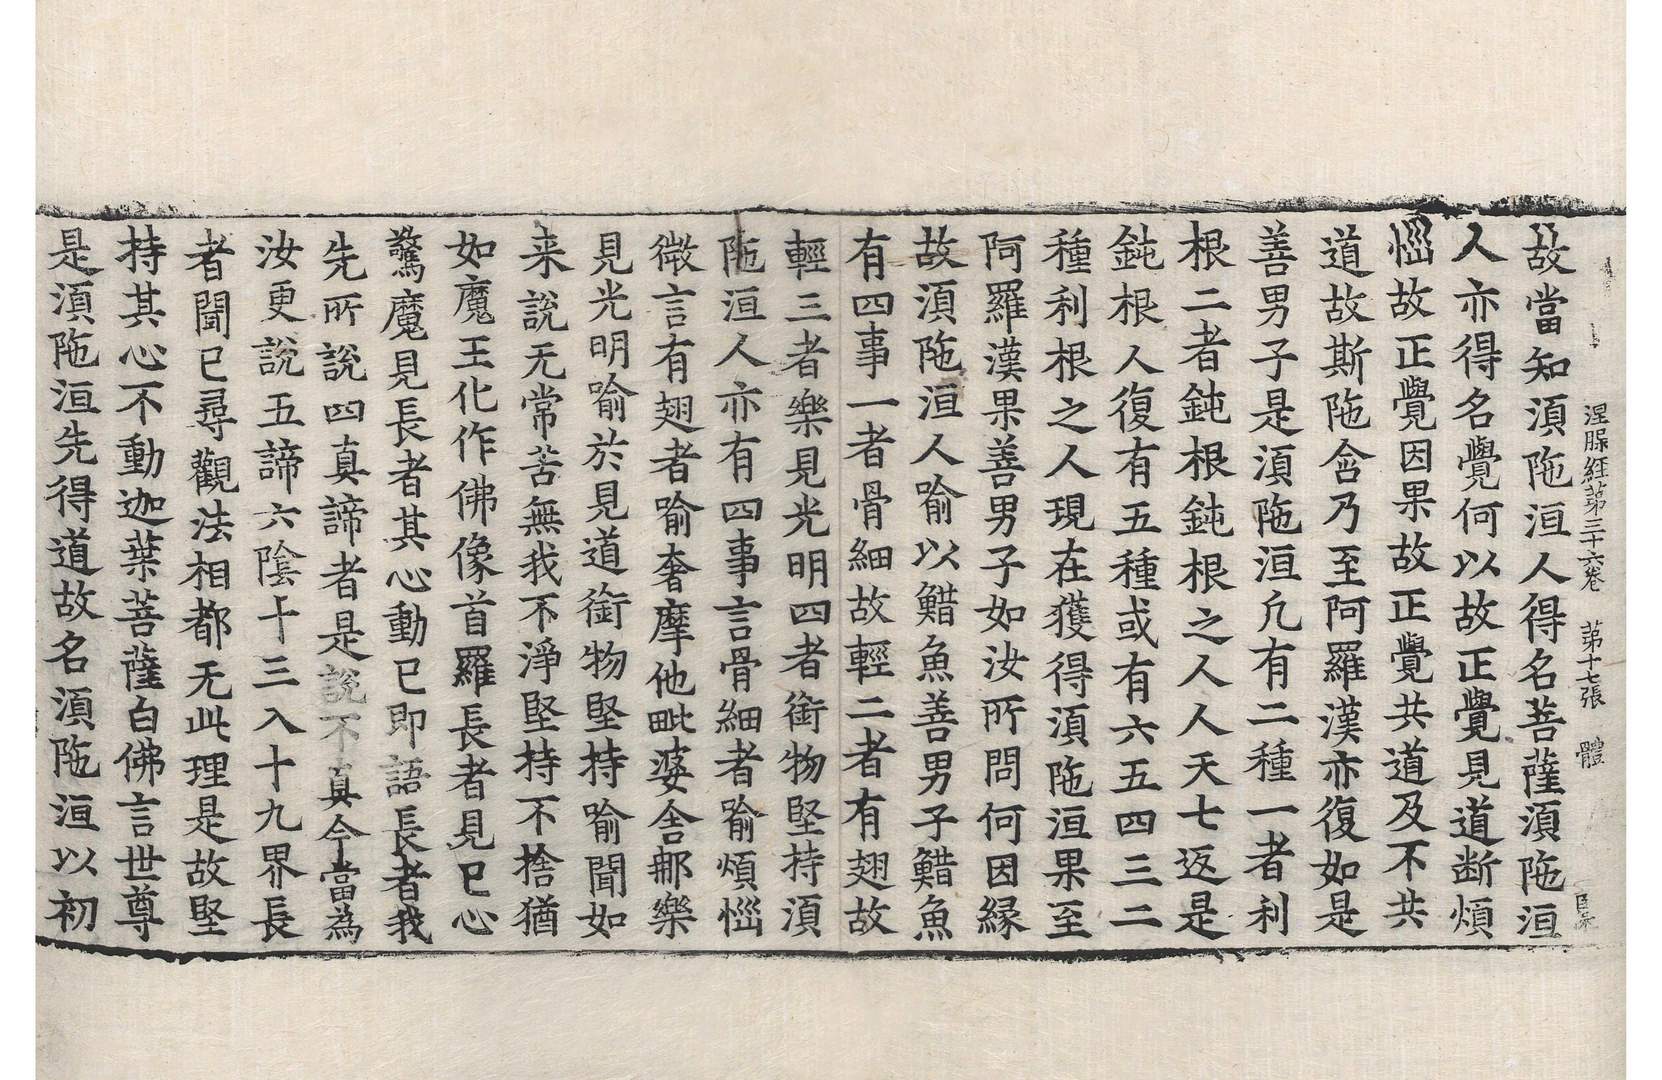 涅槃經第三十六卷 第十七張 體
故當知湏陁洹人得名菩薩湏陁洹
人亦得名覺何以故正覺見道断煩
惱故正覺因果故正覺共道及不共
道故斯陁含乃至阿羅漢亦復如是
善男子是湏陁洹凢有二種一者利
根二者鈍根鈍根之人人天七返是
鈍根人復有五種或有六五四三二
種利根之人現在獲得湏陁洹果至
阿羅漢果善男子如汝所問何因縁
故湏陁洹人喻以䱜魚善男子䱜魚
有四事一者骨細故輕二者有翅故
輕三者樂見光明四者銜物堅持湏
陁洹人亦有四事言骨細者喻煩惱
微言有翅者喻奢摩他毗婆舍那樂
見光明喻於見道銜物堅持喻聞如
来說无常苦無我不淨堅持不捨猶
如魔王化作佛像首羅長者見已心
驚魔見長者其心動已即語長者我
先所說四真諦者是說不真今當為
汝更說五諦六陰十三入十九界長
者聞已尋觀法相都无此理是故堅
持其心不動迦葉菩薩白佛言世尊
是湏陁洹先得道故名湏陁洹以初